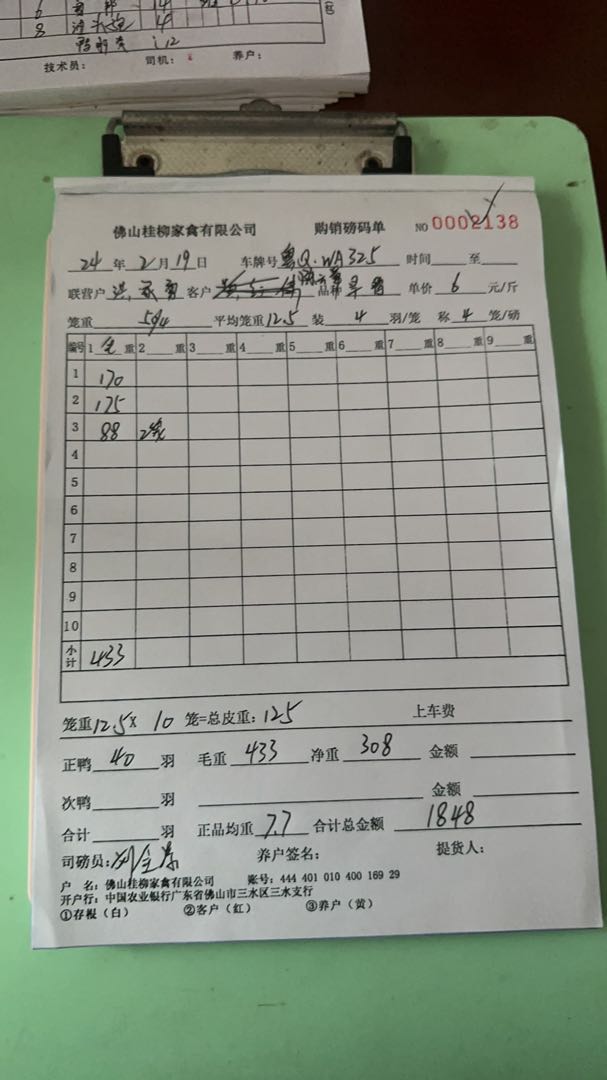 8 14
12
技术员： 司机： 养户：
佛山桂柳家禽有限公司 购销磅码单 NO 0002138
24 年 2 月 19 日 车牌号 粤Q·WA325 时间 至
联营户 客户 品种 单价 6 元/斤
笼重 5 平均笼重 12.5 装 4 羽/笼 称 4 笼/磅
编号 1 毛 重 2 重 3 重 4 重 5 重 6 重 7 重 8 重 9 重
1 170
2 175
3 88 2笼
4
5
6
7
8
9
10
小计 433
笼重 12.5 × 10 笼=总皮重： 125 上车费
正鸭 40 羽 毛重 433 净重 308 金额
次鸭 羽 金额
合计 羽 正品均重 7.7 合计总金额 1848
司磅员： 养户签名： 提货人：
户 名：佛山桂柳家禽有限公司 账号：444 401 010 400 169 29
开户行：中国农业银行广东省佛山市三水区三水支行
①存根（白） ②客户（红） ③养户（黄）